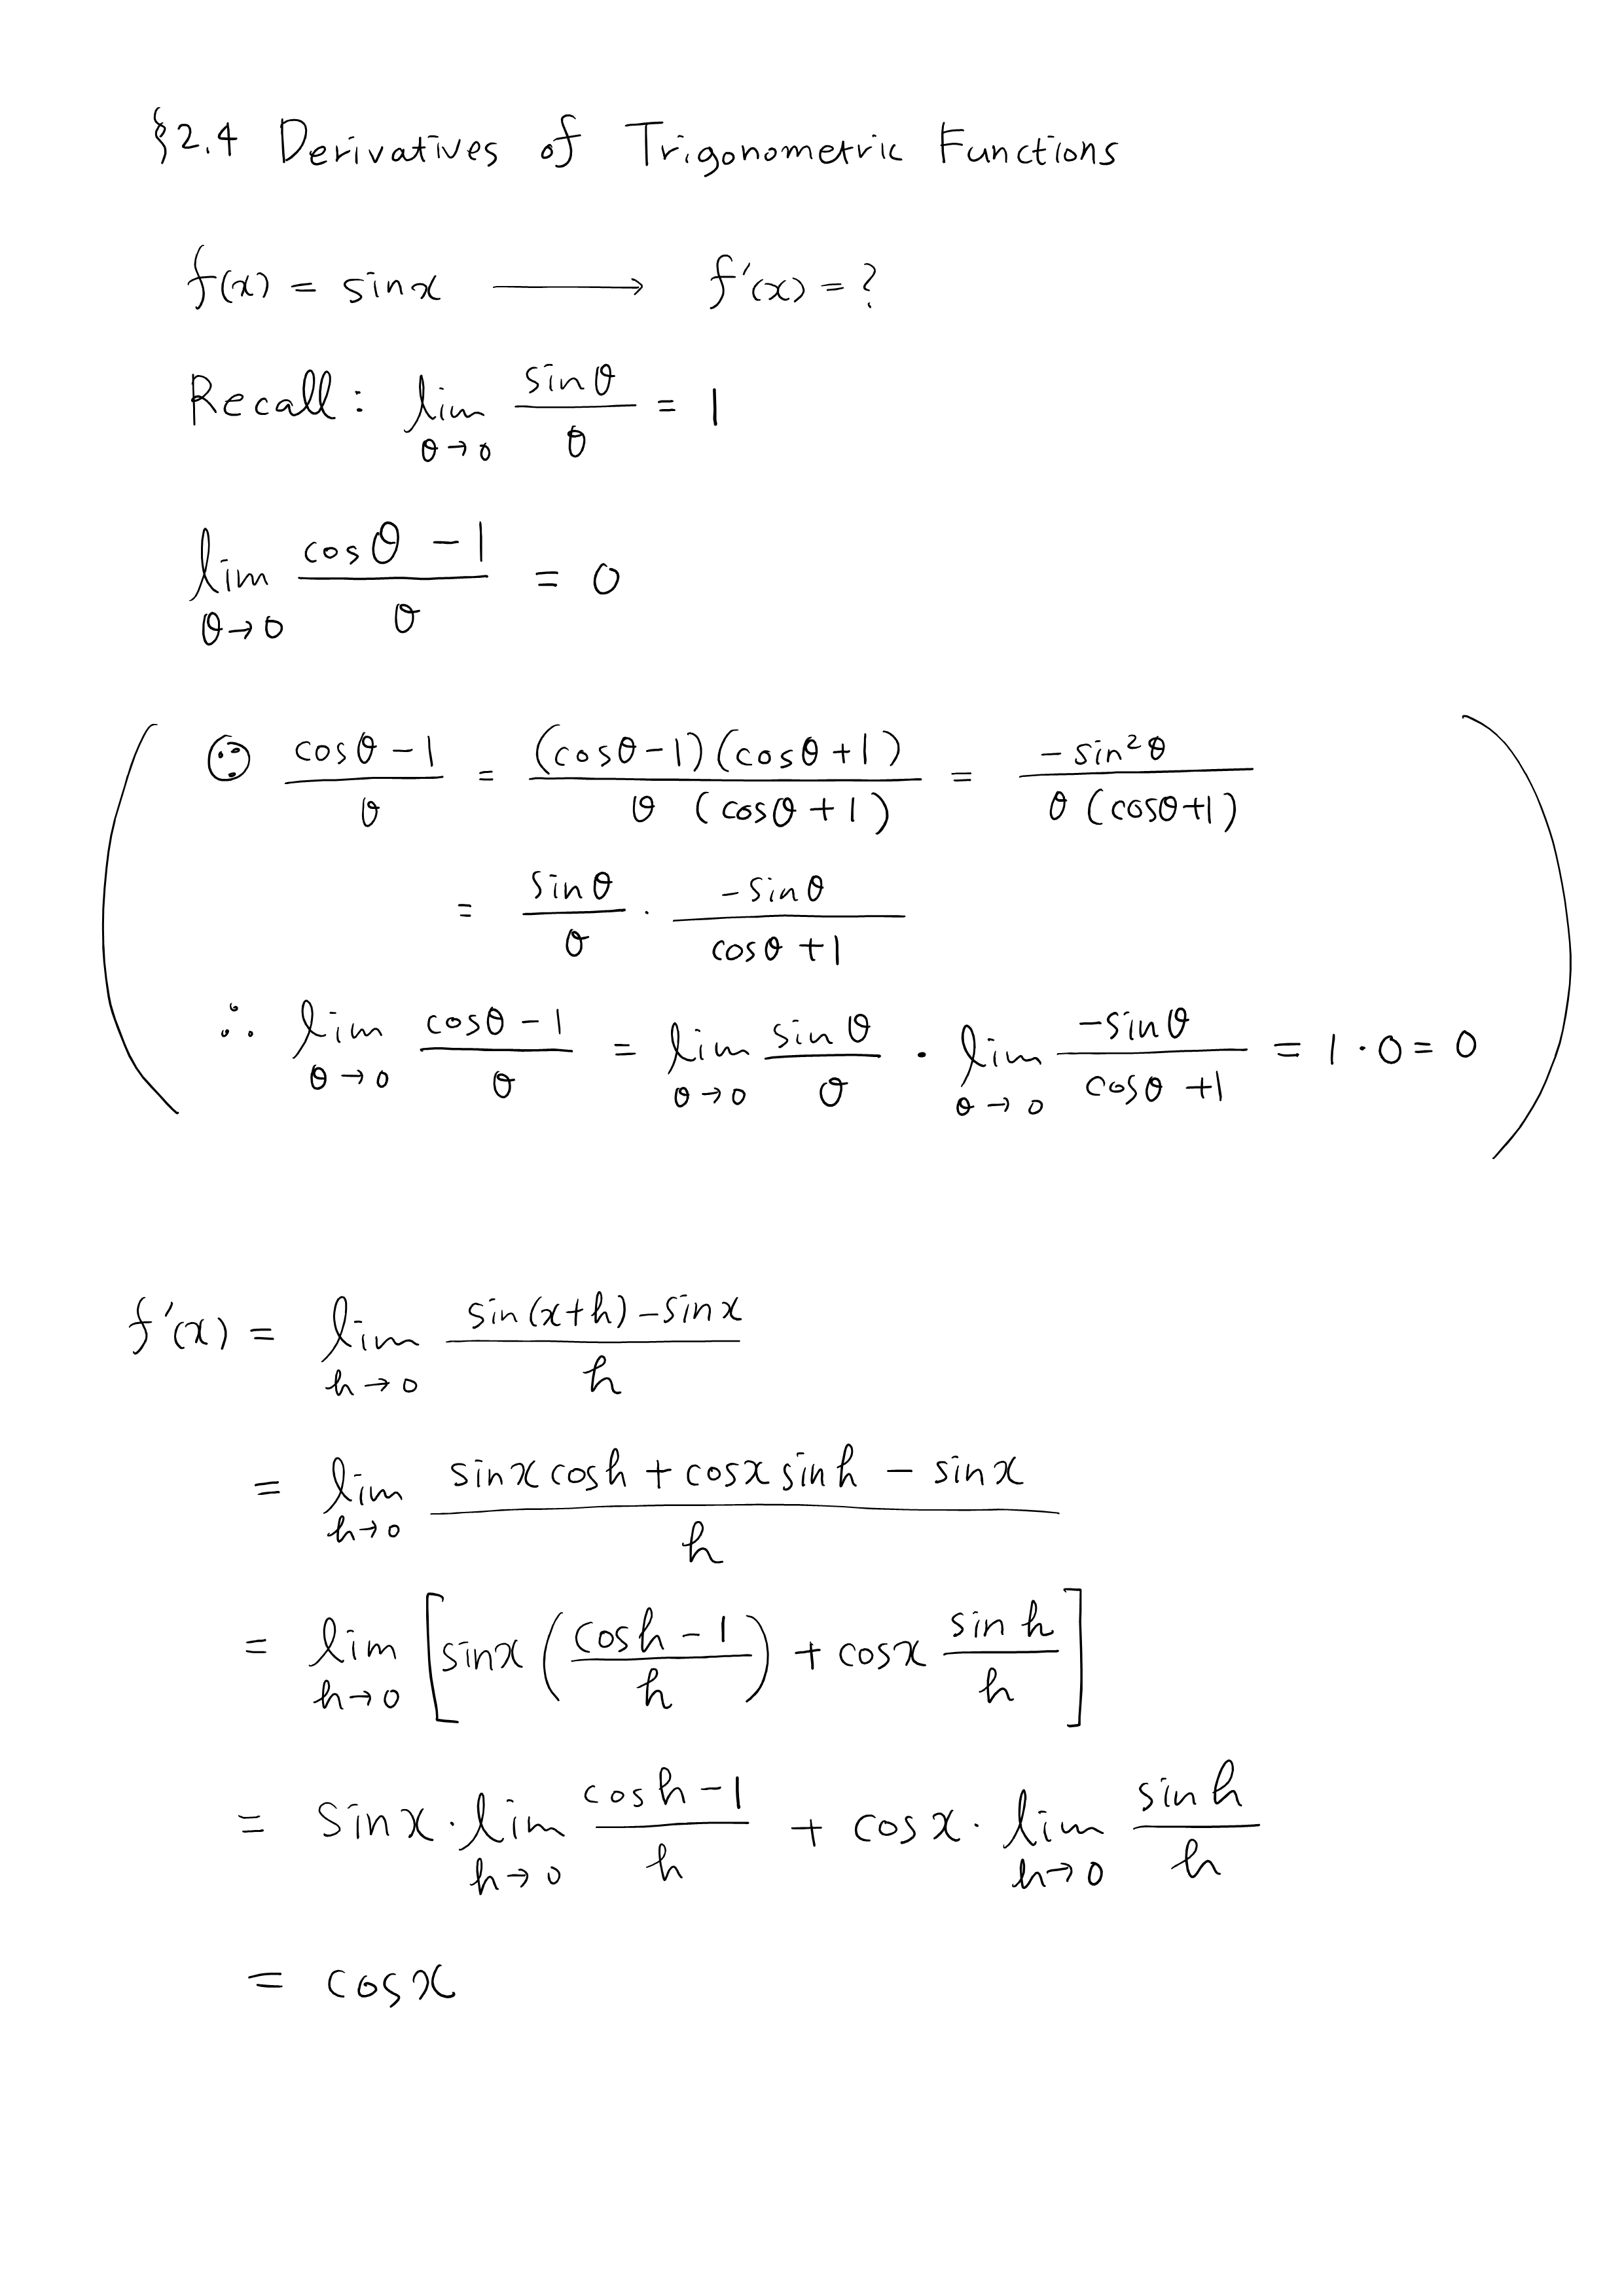 §2.4 Derivatives of Trigonometric Functions
f(x) = sinx ⟶ f'(x) = ?
Recall: lim_{θ→0} \frac{sinθ}{θ} = 1
lim_{θ→0} \frac{cosθ - 1}{θ} = 0
( ∵ \frac{cosθ - 1}{θ} = \frac{(cosθ-1)(cosθ+1)}{θ (cosθ+1)} = \frac{-sin²θ}{θ (cosθ+1)}
= \frac{sinθ}{θ} · \frac{-sinθ}{cosθ+1}
∴ lim_{θ→0} \frac{cosθ - 1}{θ} = lim_{θ→0} \frac{sinθ}{θ} · lim_{θ→0} \frac{-sinθ}{cosθ+1} = 1 · 0 = 0 )
f'(x) = lim_{h→0} \frac{sin(x+h) - sinx}{h}
= lim_{h→0} \frac{sinx cosh + cosx sinh - sinx}{h}
= lim_{h→0} [ sinx ( \frac{cosh - 1}{h} ) + cosx \frac{sinh}{h} ]
= sinx · lim_{h→0} \frac{cosh - 1}{h} + cosx · lim_{h→0} \frac{sinh}{h}
= cosx